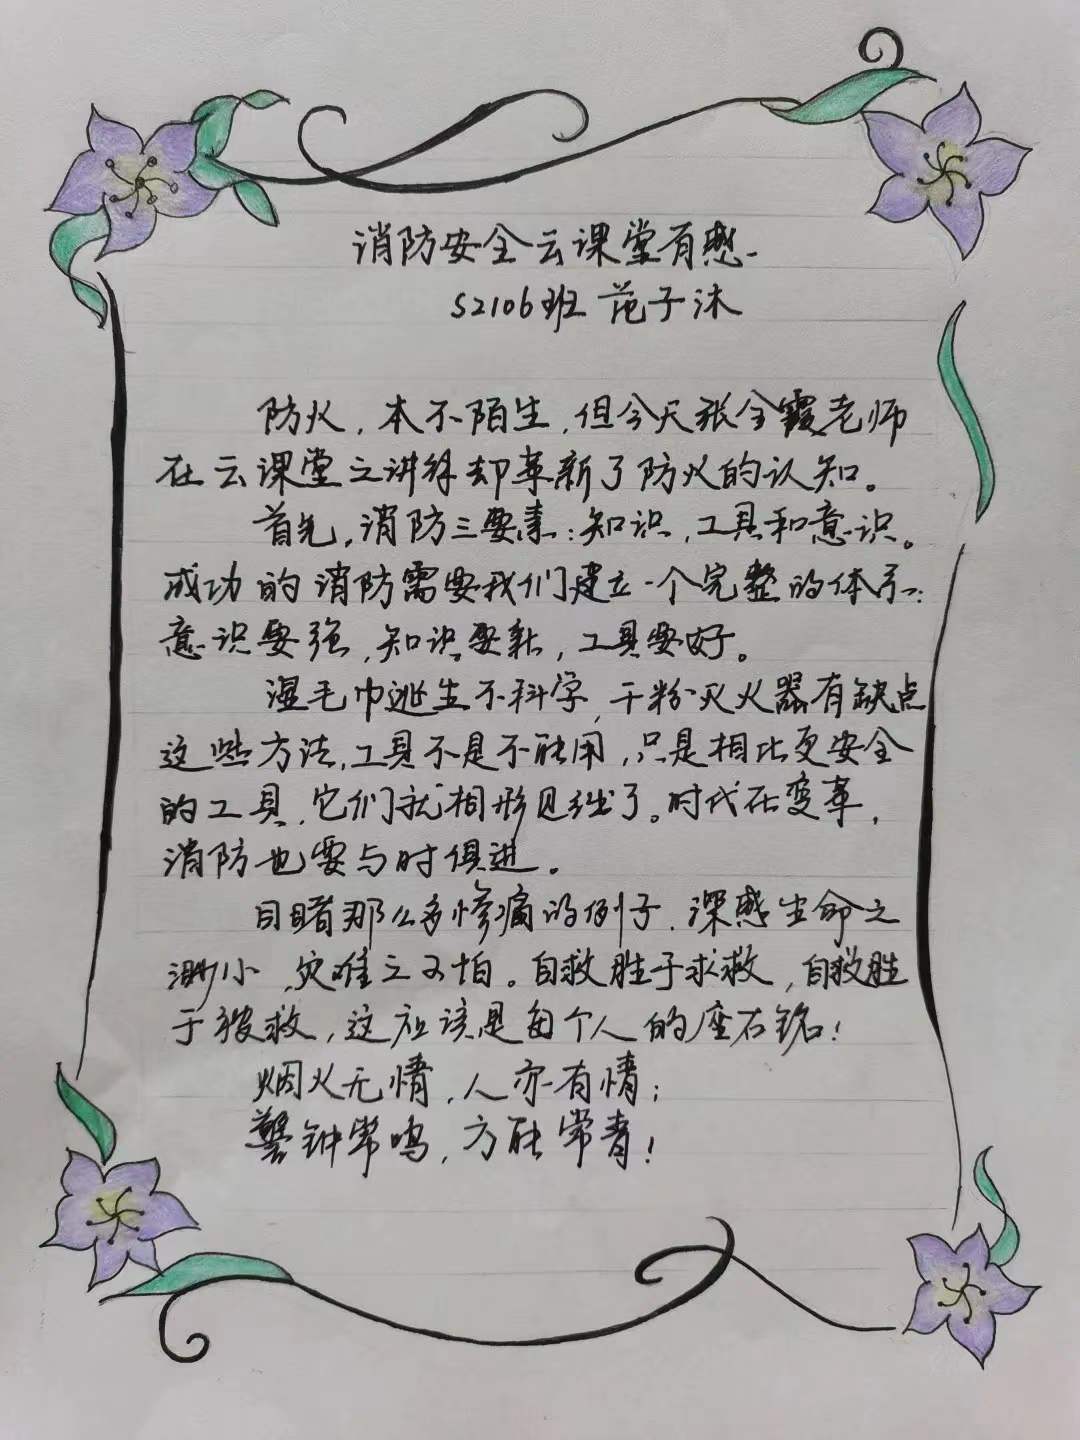 消防安全云课堂有感
S2106班 范子沐
防火，本不陌生，但今天张全霞老师
在云课堂之讲解却革新了防火的认知。
首先，消防三要素：知识，工具和意识。
成功的消防需要我们建立一个完整的体系：
意识要强，知识要新，工具要好。
湿毛巾逃生不科学，干粉灭火器有缺点
这些方法，工具不是不能用，只是相比更安全
的工具，它们就相形见绌了。时代在变革，
消防也要与时俱进。
目睹那么多惨痛的例子，深感生命之
渺小，灾难之可怕。自救胜于求救，自救胜
于被救，这应该是每个人的座右铭！
烟火无情，人亦有情；
警钟常鸣，方能常青！